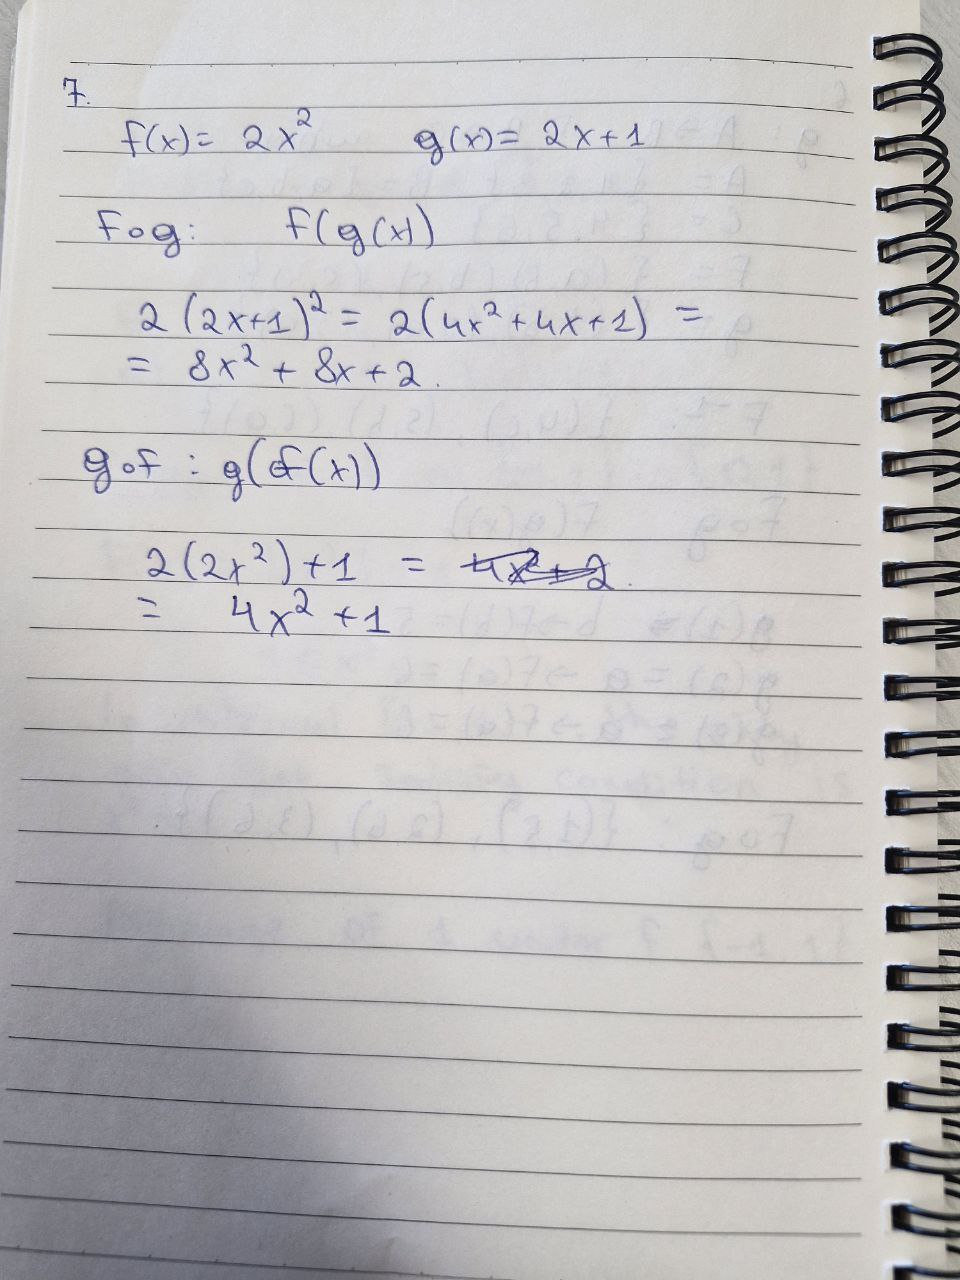 7.
f(x) = 2x² g(x) = 2x+1
fog: f(g(x))
2(2x+1)² = 2(4x²+4x+1) =
= 8x² + 8x + 2.
gof : g(f(x))
2(2x²)+1 = 4x²+2.
= 4x² + 1